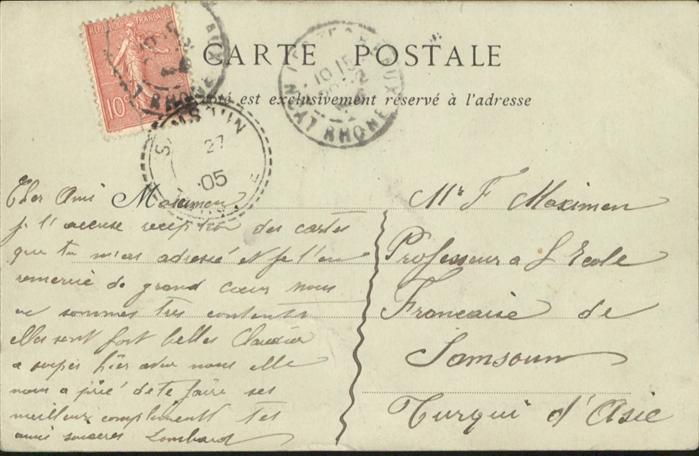 CARTE POSTALE
Ce côté est exclusivement réservé à l'adresse
REPUBLIQUE FRANÇAISE
10
LYON RHONE
LYON RHONE
10
SAMSOUN
27
05
Cher Ami Maximen
je t'accuse reception des cartes
que tu m'as adressé et je t'en
remercie de grand cœur nous
en sommes tres contents
Elles sont fort belles Claudia
a soupé hier avec nous elle
nous a prié de te faire ses
meilleurs compliments tes
amis sincères Lombard
Mr F Maximen
Professeur a L Ecole
Francaise de
Samsoun
Turqui d'Asie